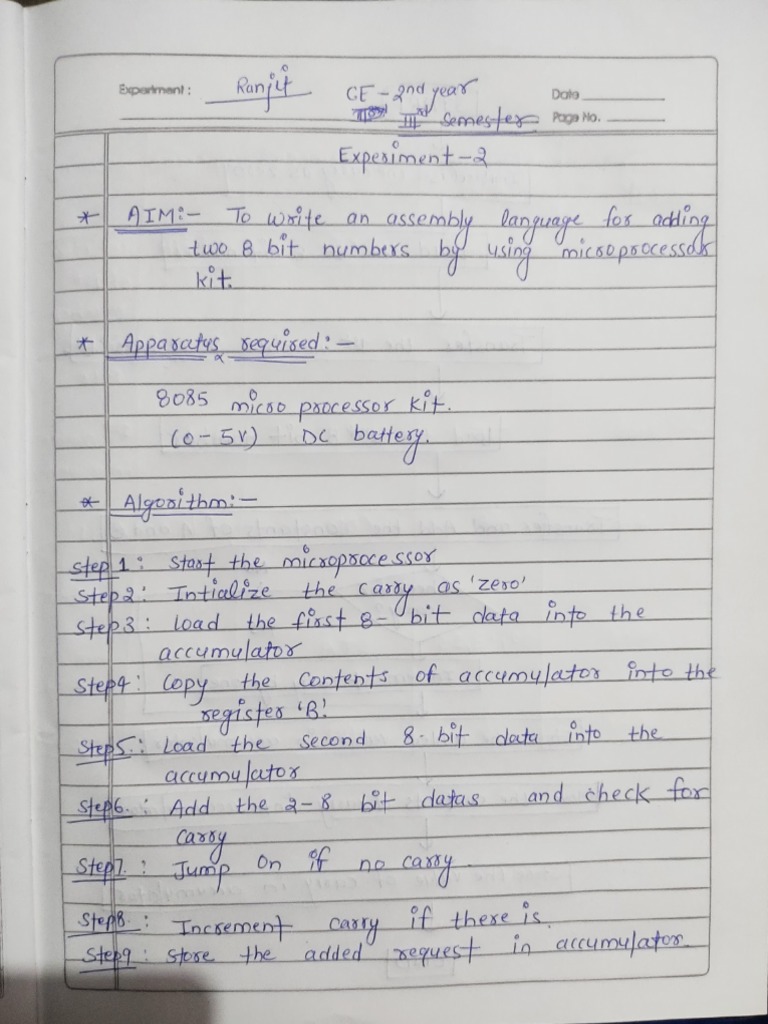 Experiment: Ranjit CE - 2nd year Date
IIIrd Semester Page No.
Experiment - 2
* AIM:- To write an assembly language for adding
two 8 bit numbers by using microprocessor
kit.
* Apparatus required:-
8085 micro processor kit.
(0-5V) DC battery.
* Algorithm:-
Step 1: Start the microprocessor
Step2: Intialize the carry as 'zero'
Step3: Load the first 8-bit data into the
accumulator
Step4: Copy the contents of accumulator into the
register 'B'.
Step5.: Load the second 8-bit data into the
accumulator
Step6.: Add the 2-8 bit datas and check for
carry
Step7.: Jump on if no carry.
Step8.: Increment carry if there is.
Step9: Store the added request in accumulator.